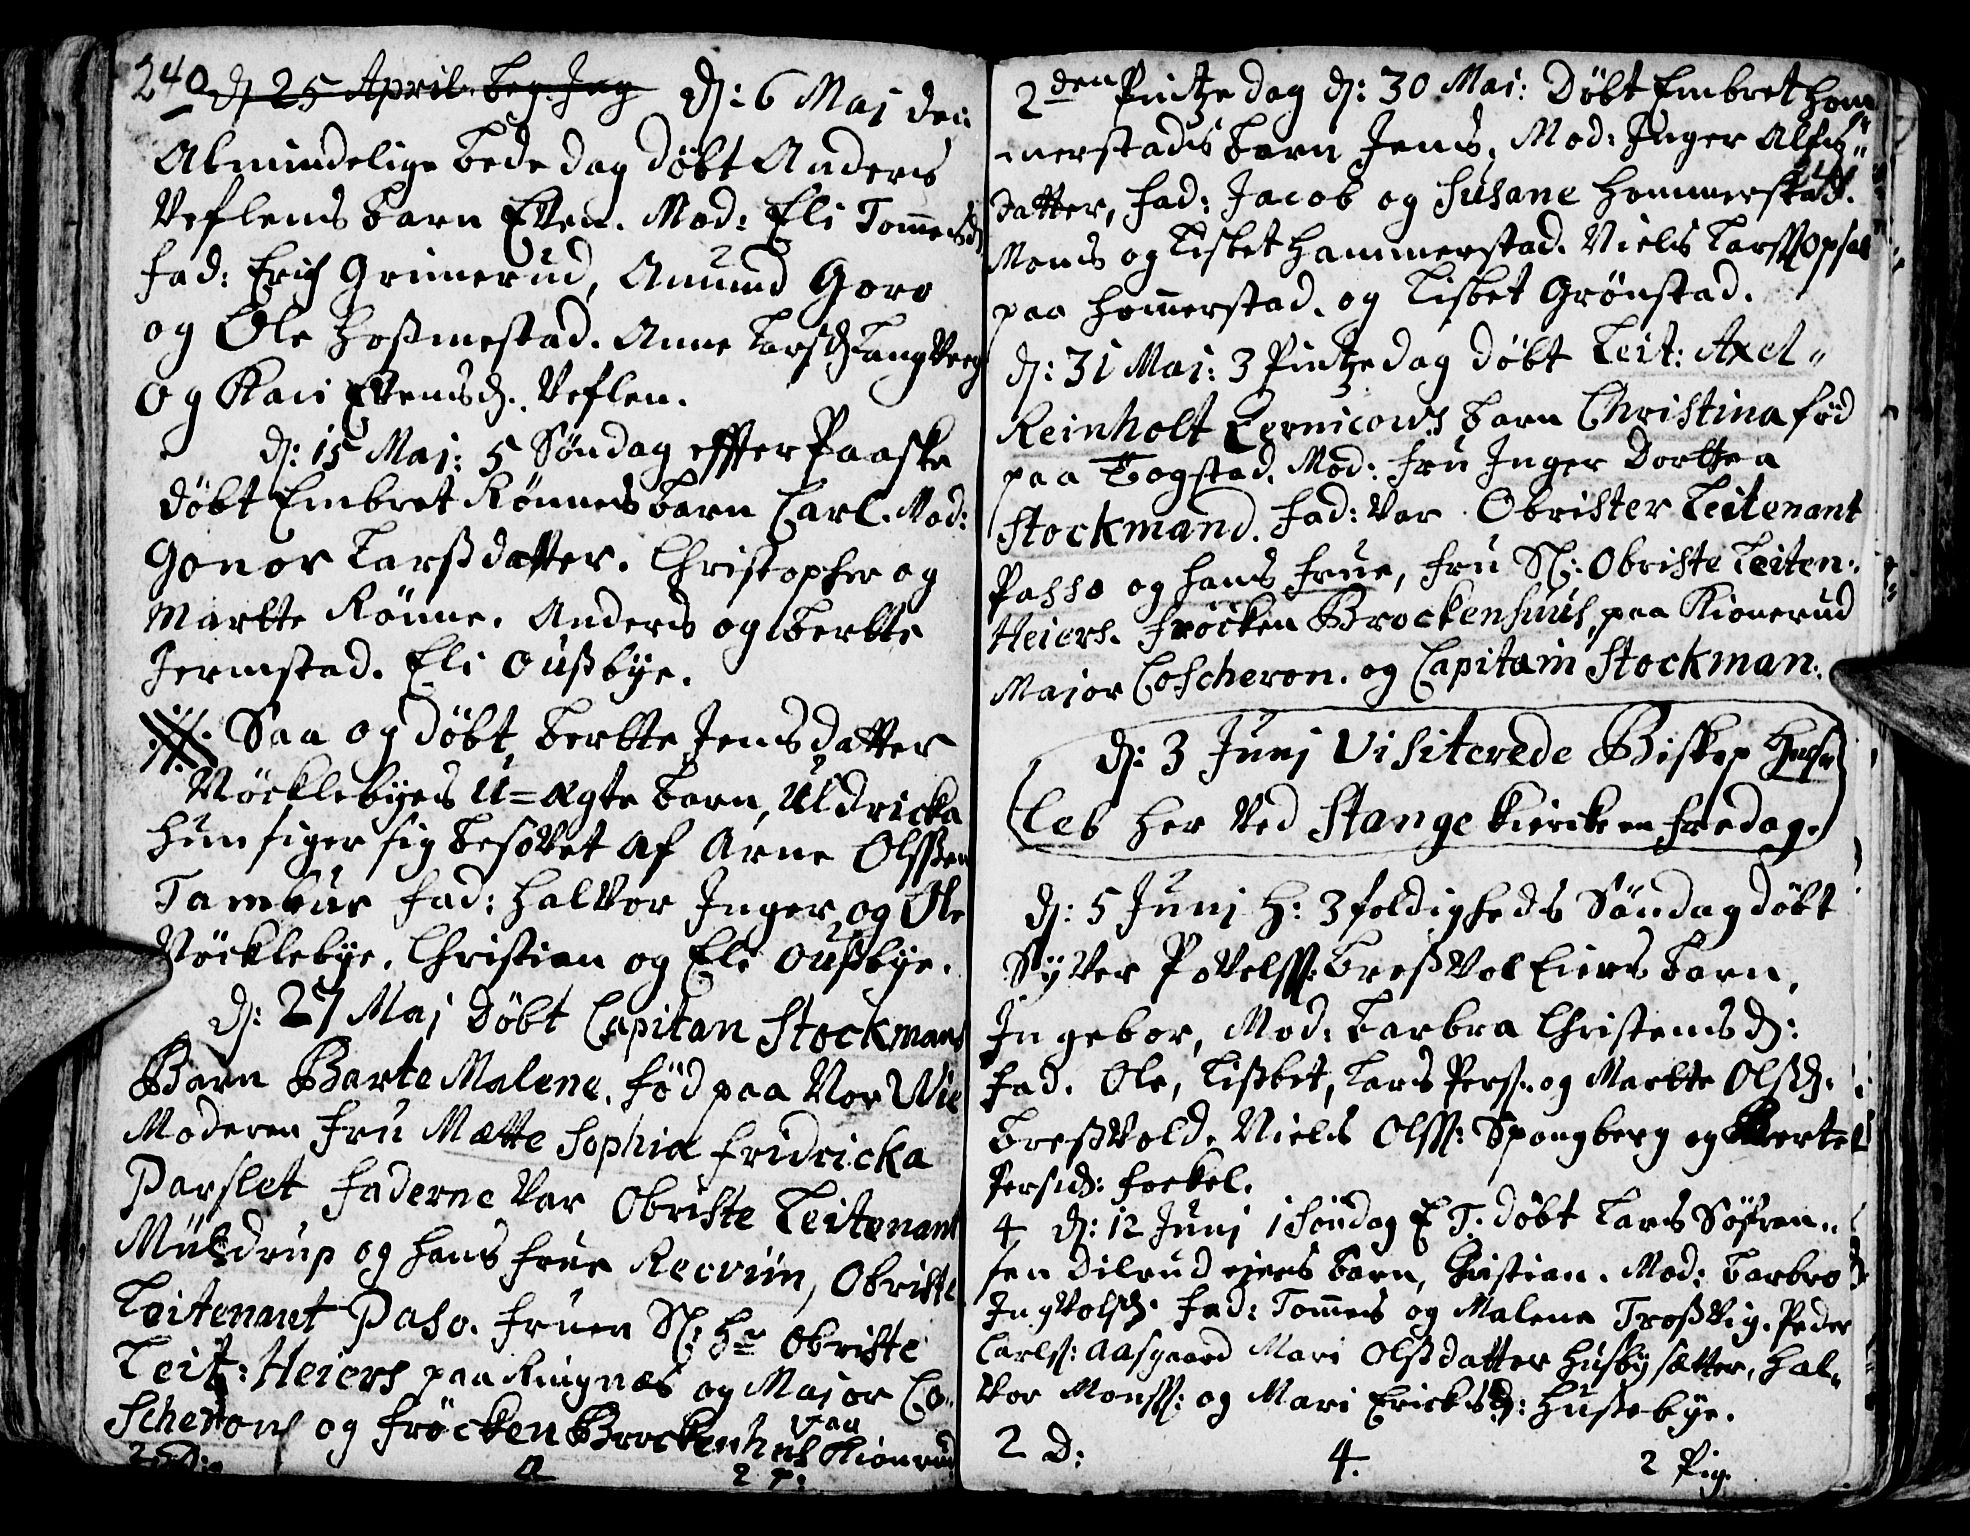 240 d: 25 April. beg. Jng d: 6 Maj den
Almindelige Bededag döbt Anders
Veflens barn Even. Mod: Eli Tommesd.
fad: Erich Grimerud, Amund Goro
og Ole Hoßmestad. Anne Larsd. Langberg
og Kari Evensd. Veflen.
d: 15 Maj: 5 Söndag effter Paaske
döbt Embret Rönnes barn Carl. Mod:
Gonor Larßdatter. Christopher og
Martte Rönne. Anders og Bertte
Jermstad. Eli Oußbye.
Saa og döbt Bertte Jensdatter
Nöcklebyes U=ægte barn, Uldricka
hun siger sig besovet af Arne Olsßen
Tambur fad: Halvor Jnger og Ole
Nöcklebye. Christian og Ele Oußbye.
d: 27 Maj Döbt Capitan Stockmans
Barn Barte Malene. föd paa Nor Wie
Moderen Fru Mætte Sophia Fridricka
Parslet Faderne var Obriste Leitenant
Müldrup og hans frue Recviin, Obriste
Leitenant Paso. Fruen Sl: Hr Obriste
Leit: Heiers paa Ringnæs og Major Co-
scheron og Fröcken Brockenhus paa Kionrud
2 D: 4 2 P:
2den Pintzedag d: 30 Maj: Döbt Embret Hom
merstads barn Jens. Mod: Jnger Alfs"
datter, Fad: Jacob og Susane Hommerstad.
Mons og Lisbet Hammerstad. Niels Larsß Opsal
paa Hommerstad. og Lisbet Grönstad.
d: 31 Maj: 3 Pintzedag döbt Leit: Axel"
Reinholt Zernicows barn Christina föd
paa Togstad. Mod: Fru Jnger Dorthea
Stockmand. Fad: var Obrister Leitenant
Passo og hans frue, Fru Sl: Obriste Leiten:
Heiers. Fröcken Brockenhuus, paa Kionerud
Major Coscheron. og Capitain Stockman.
d: 3 Junj Visiterede Biskop Hers
leb her ved Stange Kiercke en Fredag.
d: 5 Junj H: 3foldigheds Söndag döbt
Syver Povelsß: Breßvol Eiers barn,
Jngebor, Mod: Barbra Christensd:
Fad. Ole, Lißbet, Lars Pers. og Martte Olßd.
Breßvold. Niels Olsß: Spangberg og Bertel
Persd: Fockel.
4 d: 12 Junj 1 Söndag E T. döbt Lars Söfren"
sen Dilrud eiers barn, Christian. Mod: Barbro
Jngvolsd. Fad: Tommes og Malene Troßvig. Peder
Carlsß: Aasgaard Mari Olßdatter Husby sætter, Hal"
vor Monsß: og Mari Ericksd: Hußebye.
2 D: 4. 2 Pig.